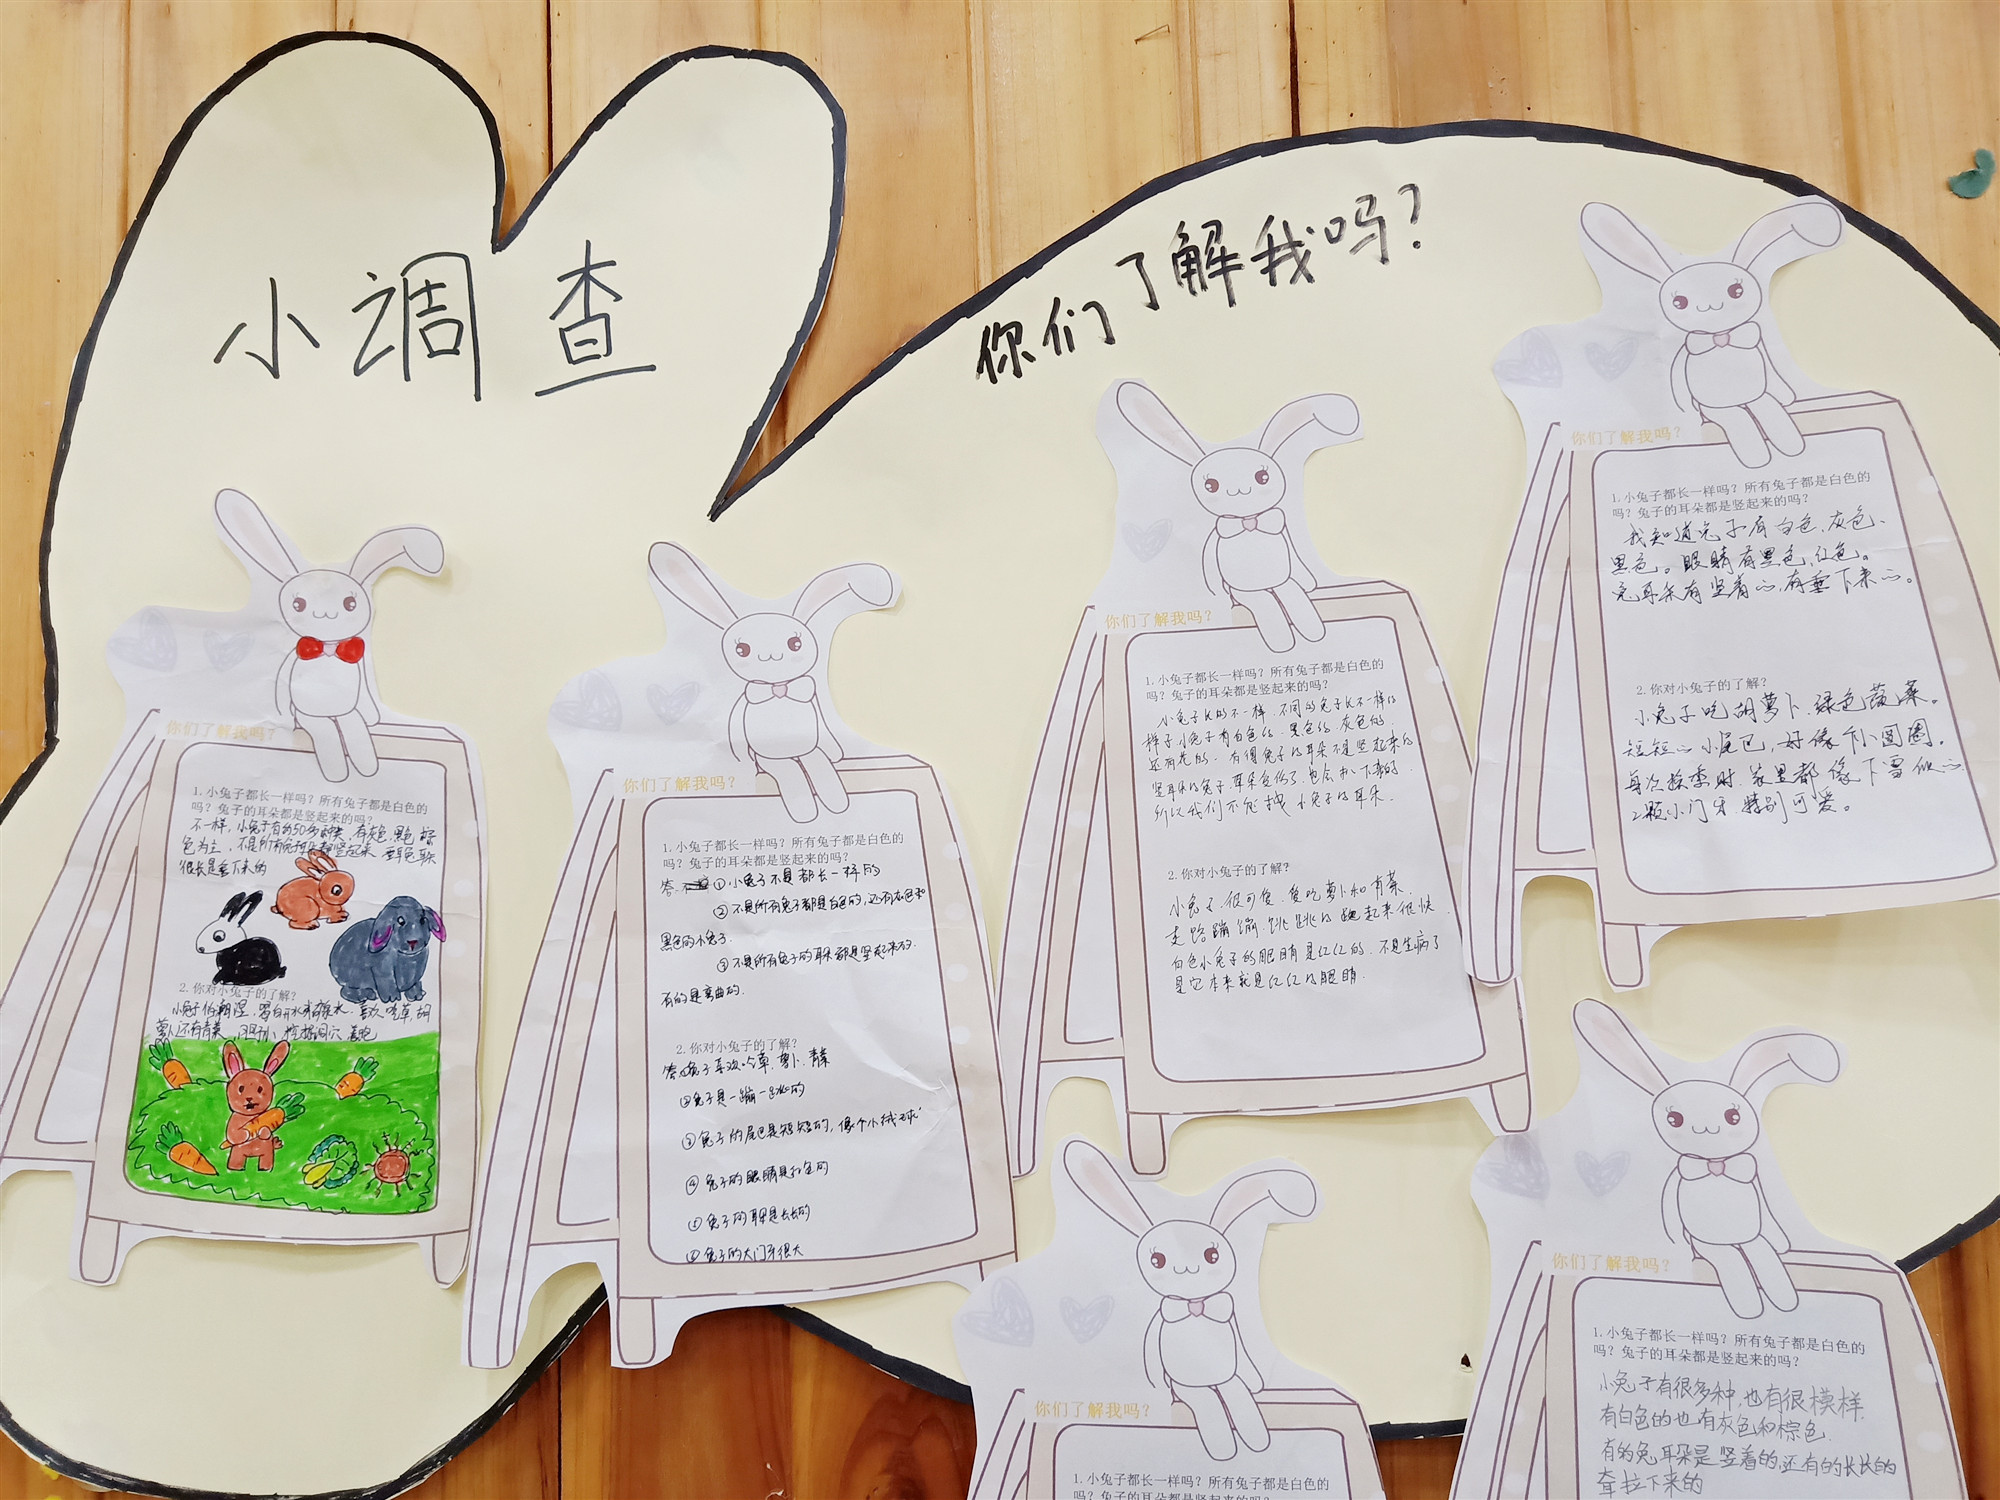 小调查
你们了解我吗？
你们了解我吗？
1.小兔子都长一样吗？所有兔子都是白色的
吗？兔子的耳朵都是竖起来的吗？
不一样，小兔子有的50多种类，有灰色 黑色 棕
色为主，不是所有兔耳朵都竖起来
很长是垂下来的
2.你对小兔子的了解？
喜欢吃草，胡
萝卜还有青菜
你们了解我吗？
1.小兔子都长一样吗？所有兔子都是白色的
吗？兔子的耳朵都是竖起来的吗？
答：①小兔子不是都长一样的
②不是所有兔子都是白色的，还有灰色和
黑色的小兔子.
③不是所有兔子的耳朵都是竖起来的.
有的是弯曲的.
2.你对小兔子的了解？
答：兔子喜欢吃草、萝卜、青菜
②兔子是一蹦一跳的
③兔子的尾巴是短短的，像个小绒球
④兔子的眼睛是红色的
⑤兔子的耳朵是长长的
⑥兔子的大门牙很大
你们了解我吗？
1.小兔子都长一样吗？所有兔子都是白色的
吗？兔子的耳朵都是竖起来的吗？
小兔子长的不一样.不同的兔子长不一样的
样子.小兔子有白色的.黑色的.灰色的.
还有花的.有得兔子的耳朵不是竖起来的
竖耳朵的兔子.耳朵受伤了.也会趴下来的.
所以我们不能拽小兔子的耳朵.
2.你对小兔子的了解？
小兔子.很可爱.爱吃萝卜和青菜.
走路蹦蹦.跳跳的跑起来很快.
白色小兔子的眼睛是红红的.不是生病了
是它本来就是红红的眼睛.
你们了解我吗？
1.小兔子都长一样吗？所有兔子都是白色的
吗？兔子的耳朵都是竖起来的吗？
我知道兔子有白色、灰色、
黑色。眼睛有黑色，红色。
兔耳朵有竖着的，有垂下来的。
2.你对小兔子的了解？
小兔子吃胡萝卜.绿色蔬菜。
短短的小尾巴，好像个小圆圈。
每次换季时.家里都像下雪似的.
2颗小门牙.特别可爱。
你们了解我吗？
1.小兔子都长一样吗？所有兔子都是白色的
吗？兔子的耳朵都是竖起来的吗？
你们了解我吗？
1.小兔子都长一样吗？所有兔子都是白色的
吗？兔子的耳朵都是竖起来的吗？
小兔子有很多种，也有很模样.
有白色的也有灰色和棕色.
有的兔耳朵是竖着的，还有的长长的
牵拉下来的